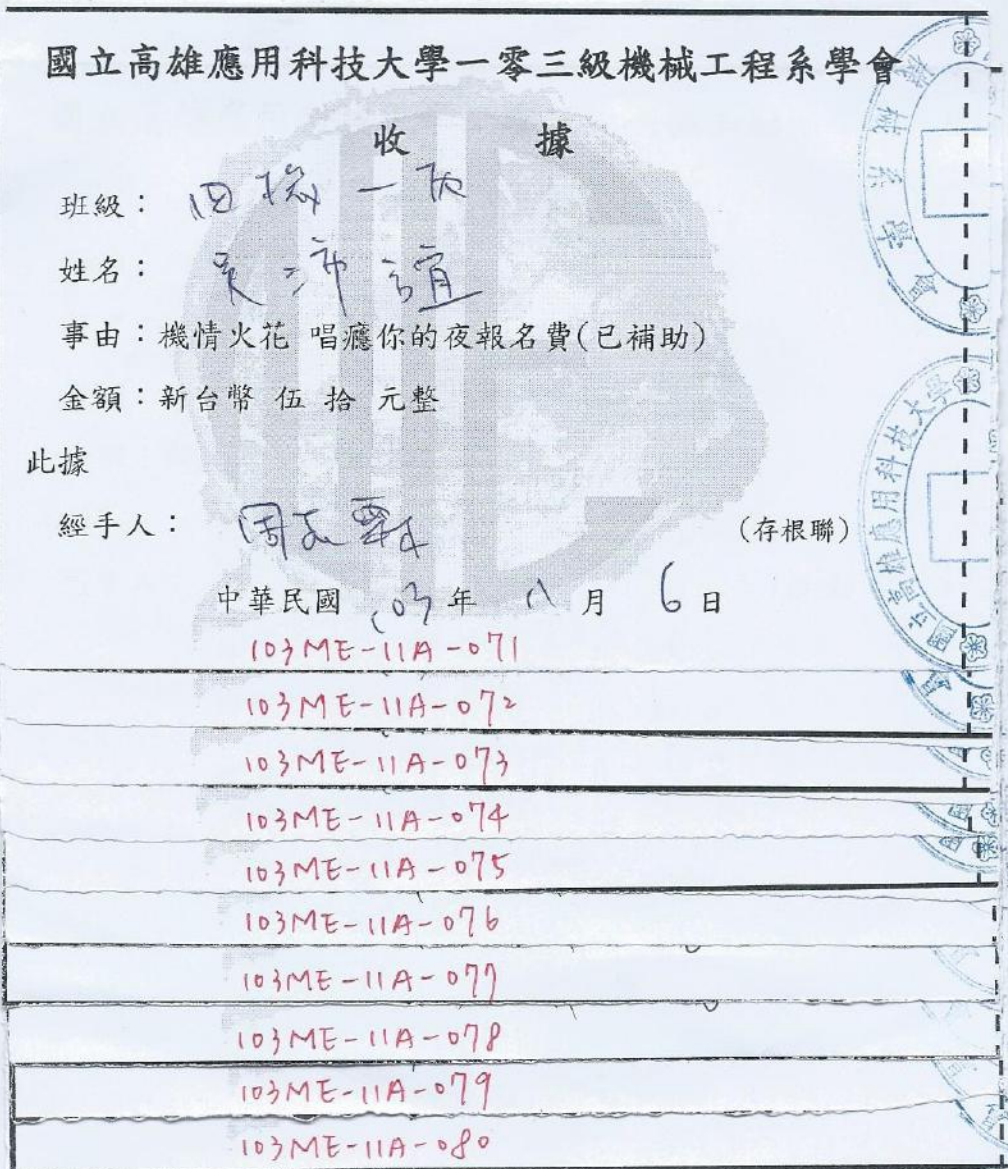 國立高雄應用科技大學一零三級機械工程系學會
收 據
班級： 四機一
姓名： 吳沛誼
事由：機情火花 唱癮你的夜報名費(已補助)
金額：新台幣 伍 拾 元整
此據
經手人： 周
(存根聯)
中華民國 103 年 11 月 6 日
103ME-11A-071
103ME-11A-072
103ME-11A-073
103ME-11A-074
103ME-11A-075
103ME-11A-076
103ME-11A-077
103ME-11A-078
103ME-11A-079
103ME-11A-080
機械系學會
國立高雄應用科技大學